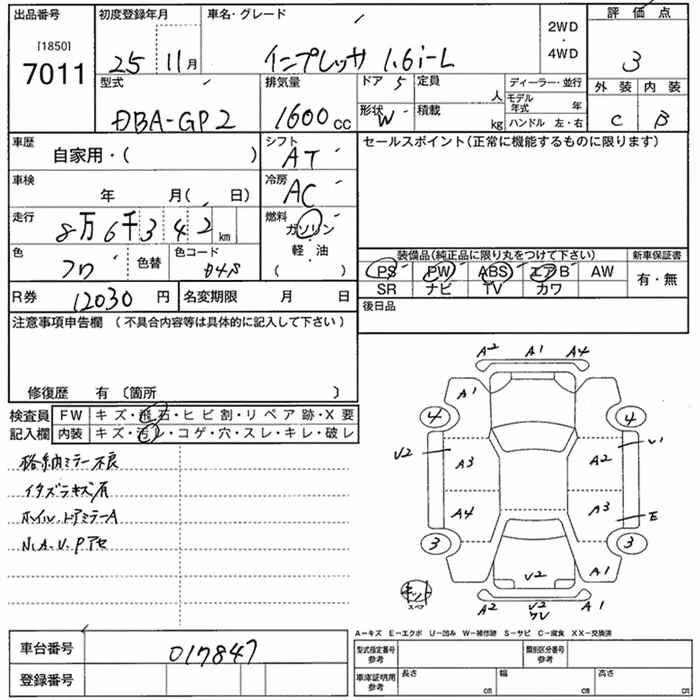 出品番号
[1850]
7011
初度登録年月
25 11月
車名・グレード
インプレッサ 1.6i-L
2WD
・
4WD
評価点
3
外装 内装
C B
型式
DBA-GP2
排気量
1600cc
ドア 5
形状 W
定員 人
積載 kg
ディーラー・並行
モデル年式 年
ハンドル 左・右
車歴
自家用・( )
シフト
AT
車検
年 月( 日)
冷房
AC
走行
8万6千342km
燃料
ガソリン
・
軽・油
( )
色
色替
色コード
D4S
R券
12030円
名変期限 月 日
セールスポイント(正常に機能するものに限ります)
装備品(純正品に限り丸をつけて下さい)
PS PW ABS エアB AW
SR ナビ TV カワ
新車保証書
有・無
後日品
注意事項申告欄 (不具合内容等は具体的に記入して下さい)
修復歴 有 〔箇所 〕
検査員記入欄
FW キズ・飛石・ヒビ割・リペア跡・X要
内装 キズ・汚レ・コゲ・穴・スレ・キレ・破レ
格納ミラー不良
イタズラキズ有
ホイル、ドアミラーA
N.A.U.Pアセ
A2 A1 A4
A1
4 4
U2 A3 A2 U1
A4 A3 E
3 3
A1
U2
スペア
A2 U2 A1
A－キズ E－エクボ U－凹み W－補修跡 S－サビ C－腐食 XX－交換済
車台番号
017847
登録番号
型式指定番号 参考
類別区分番号 参考
車庫証明用 参考
長さ cm
幅 cm
高さ cm